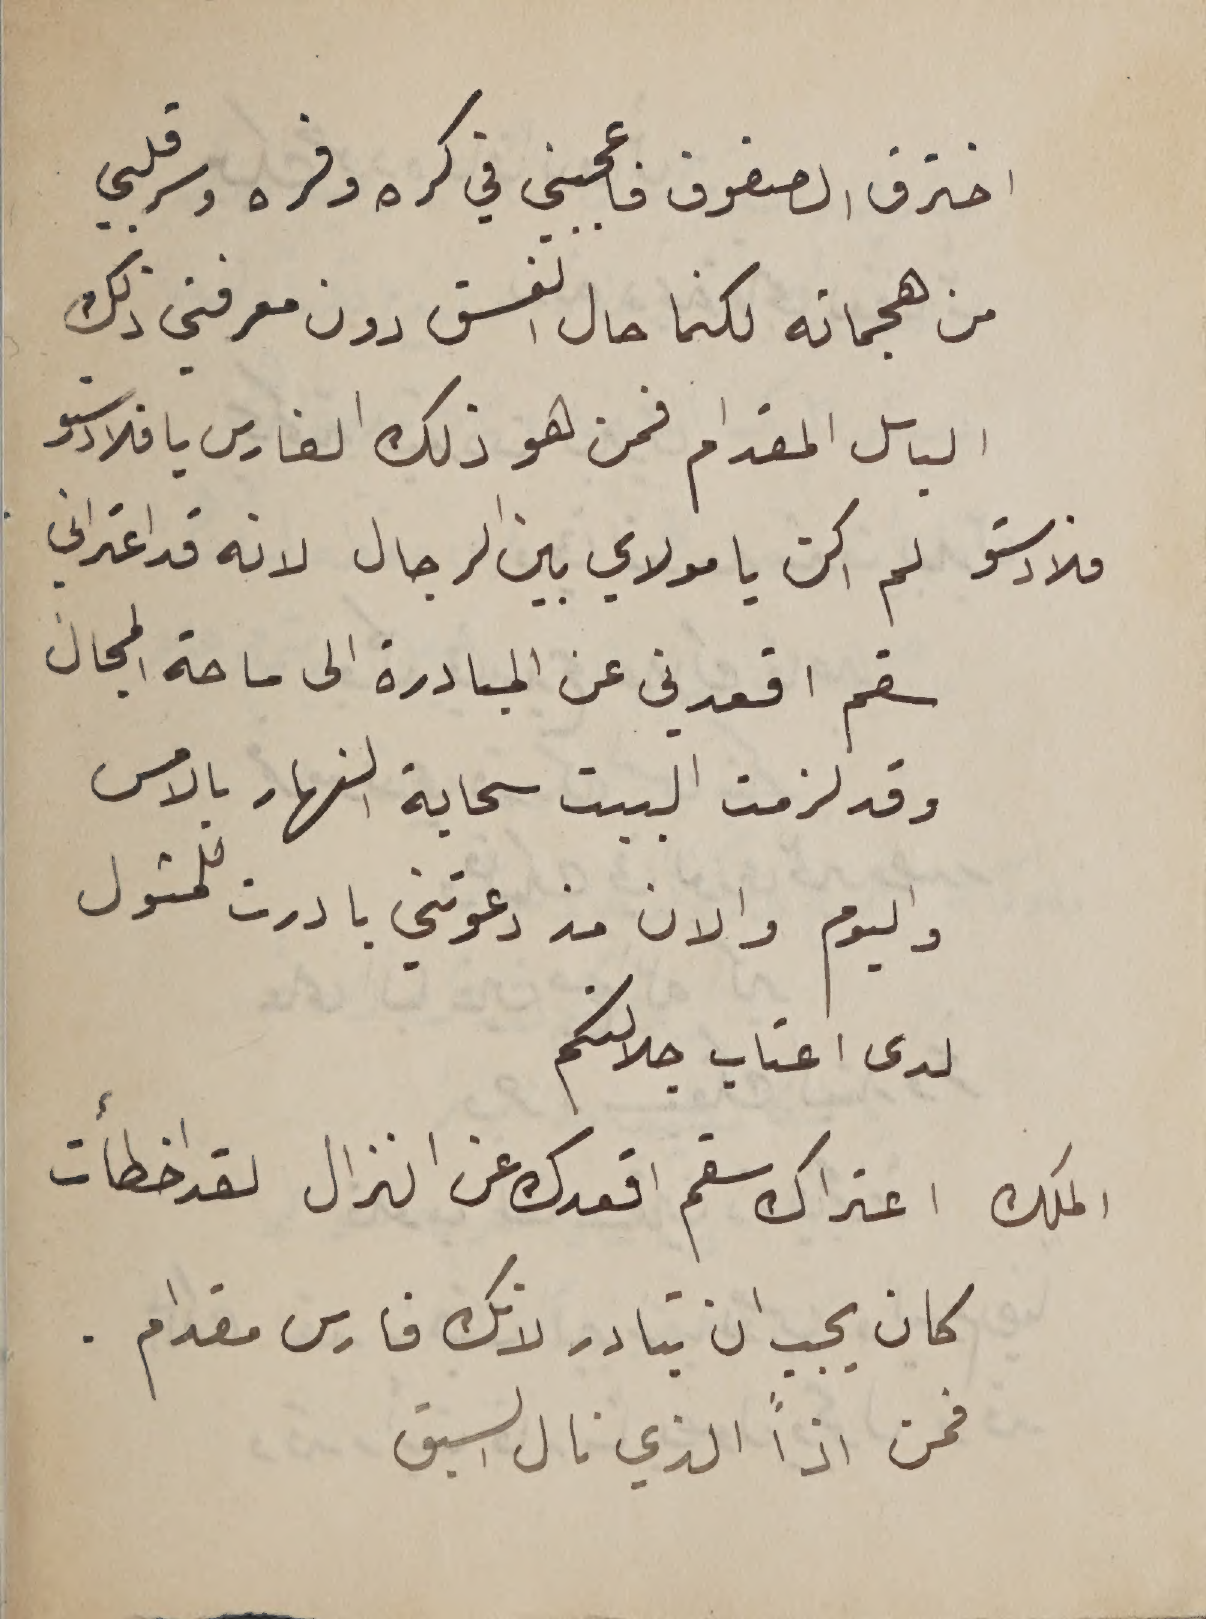 اخترق الصفوف فاعجبني في كره وفره وسر قلبي
من هجماته لكنما حال الغسق دون معرفتي ذلك
الباسل المقدام فمن هو ذلك الفارس يا فلادستو
فلادستو لم اكن يا مولاي بين الرجال لانه قد اعتراني
سقم اقعدني عن المبادرة الى ساحة المجال
وقد لزمت البيت سحابة النهار بالامس
واليوم والان مذ دعوتني بادرت للمثول
لدى اعتاب جلالتكم
الملك اعتراك سقم اقعدك عن النزال لقد اخطأت
كان يجب ان تبادر لانك فارس مقدام .
فمن اذاً الذي نال السبق